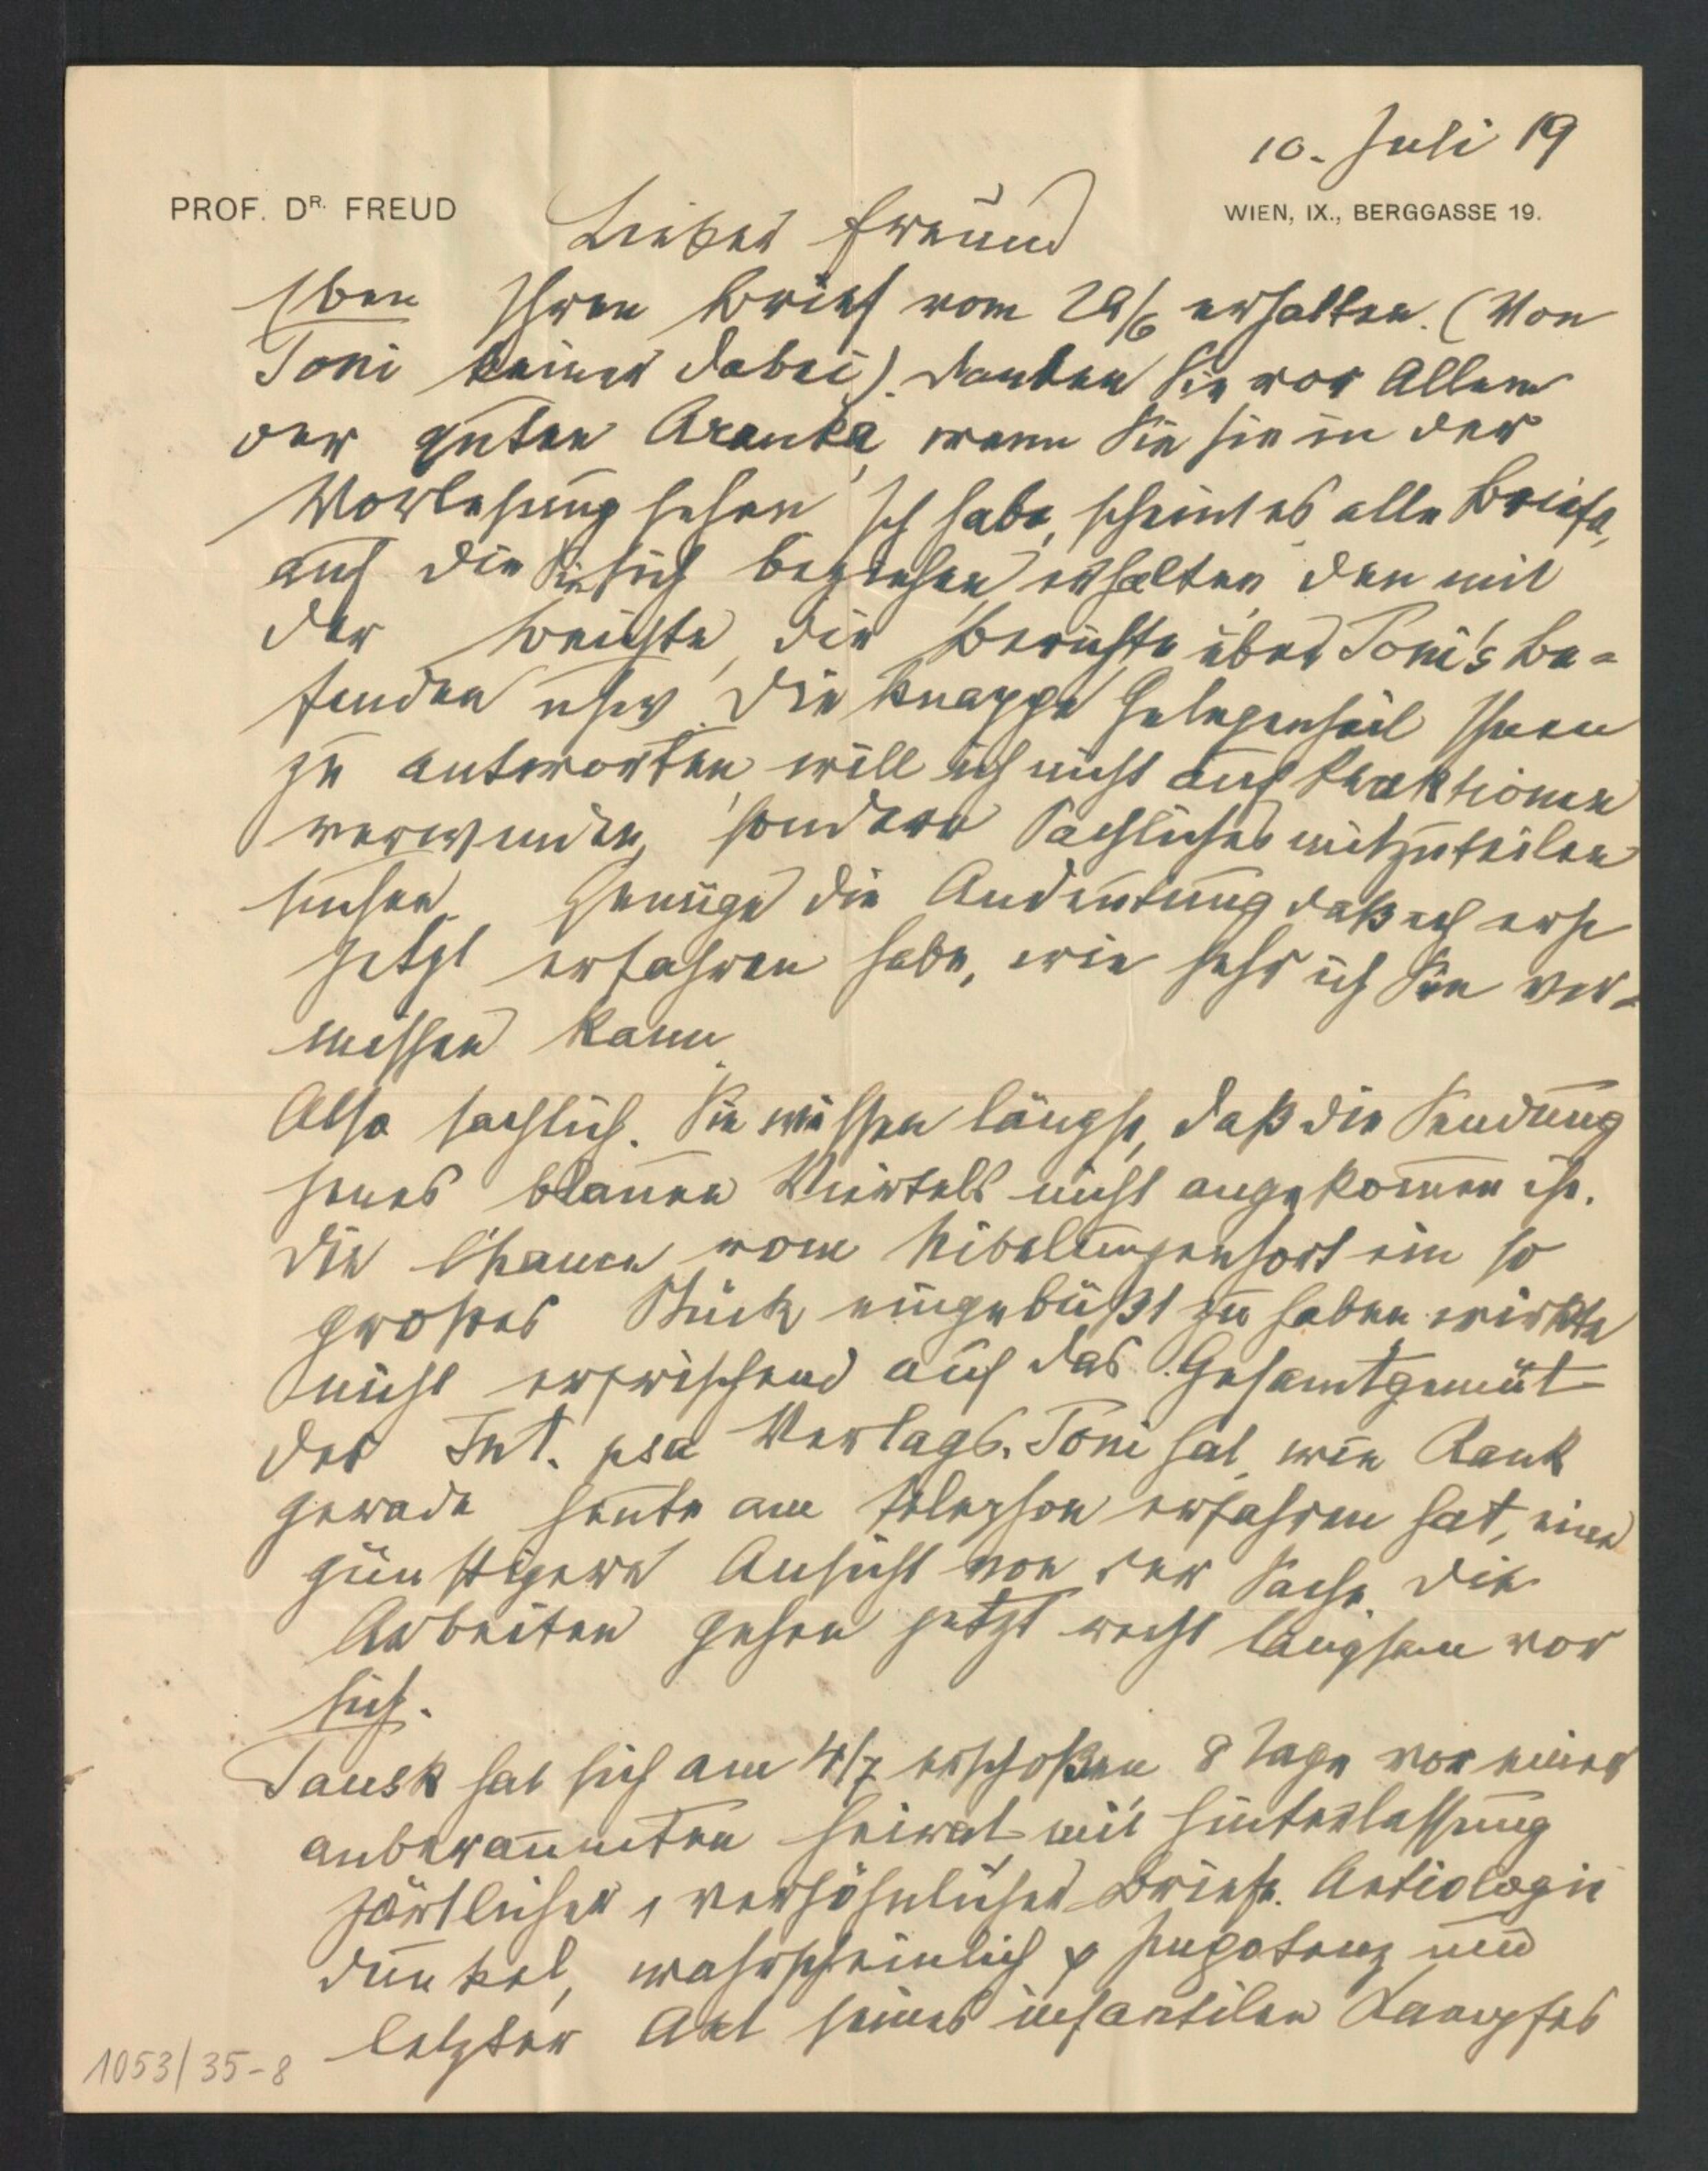 10. Juli 19
PROF. DR. FREUD
WIEN, IX., BERGGASSE 19.
Lieber Freund
Eben Ihren Brief vom 29/6 erhalten. (Von
Toni keiner dabei). Danken Sie vor Allem
der guten Aranka, wenn Sie sie in der
Vorlesung sehen. Ich habe, scheint es alle Briefe,
auf die Sie sich beziehen, erhalten, den mit
der Beichte, die Berichte über Toni's Be-
finden usw. Die knappe Gelegenheit Ihnen
zu antworten, will ich nicht auf Reaktionen
verwenden, sondern Sachliches mitzuteilen
suchen. Genüge die Andeutung daß ich erst
jetzt erfahren habe, wie sehr ich Sie ver-
missen kann.
Also sachlich. Sie wissen längst, daß die Sendung
jenes blauen Viertels nicht angekommen ist.
Die Chance vom Nibelungenhort ein so
großes Stück eingebüßt zu haben wirkte
nicht erfrischend auf das Gesamtgemüt
des Int. psa Verlags. Toni hat, wie Rank
gerade heute am Telephon erfahren hat, eine
günstigere Ansicht von der Sache. Die
Arbeiten gehen jetzt recht langsam vor
sich.
Tausk hat sich am 4/7 erschoßen, 8 Tage vor einer
anberaumten Heirat mit Hinterlassung
zärtlicher, versöhnlicher Briefe. Aetiologie
dunkel, wahrscheinlich ψ Impotenz und
letzter Akt seines infantilen Kampfes
1053/35-8